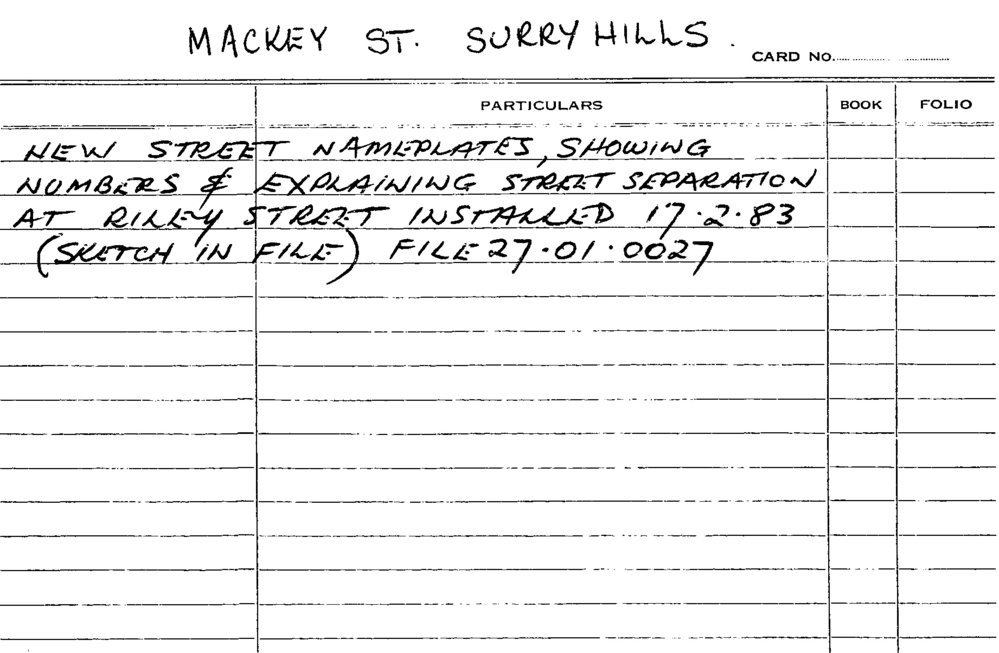 MACKEY ST. SURRY HILLS.
CARD NO.
PARTICULARS BOOK FOLIO
NEW STREET NAMEPLATES, SHOWING
NUMBERS & EXPLAINING STREET SEPARATION
AT RILEY STREET INSTALLED 17.2.83
(SKETCH IN FILE) FILE 27.01.0027